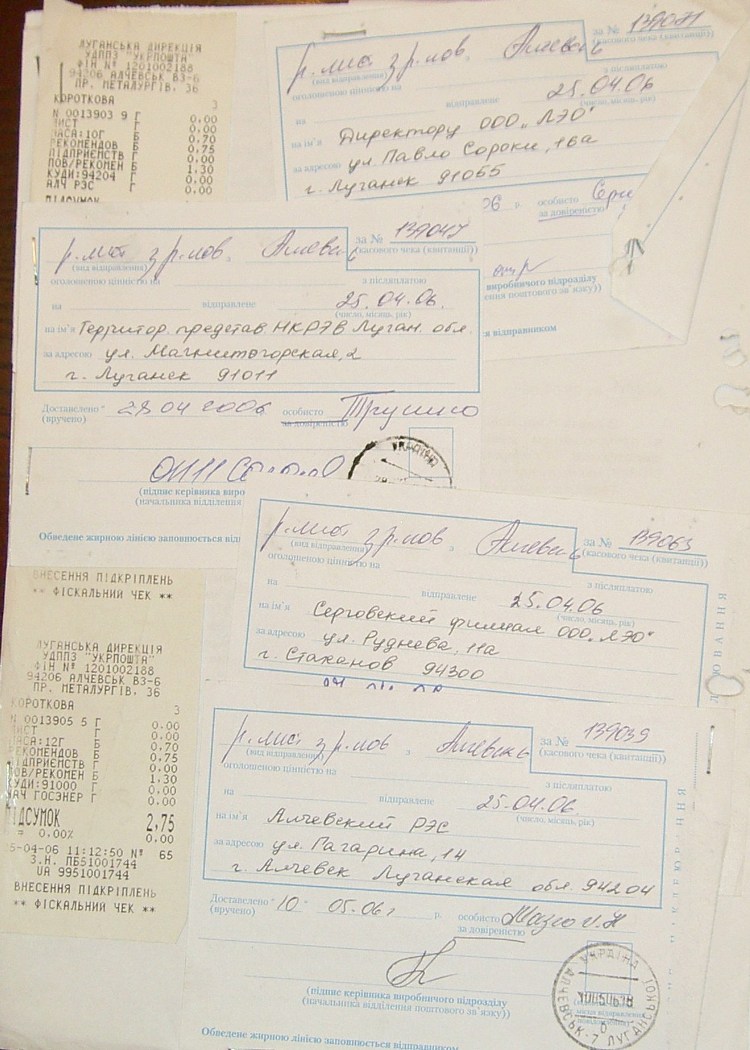 ЛУГАНСЬКА ДИРЕКЦІЯ
УДППЗ "УКРПОШТА"
ФІН № 1201002188
94206 АЛЧЕВСЬК ВЗ-6
ПР. МЕТАЛУРГІВ, 36
КОРОТКОВА 3
N 0013903 9 Г 0.00
ЛИСТ Г 0.00
МАСА:10Г Б 0.70
РЕКОМЕНДОВ Б 0.75
ПІДПРИЄМСТВ Г 0.00
ПОВ/РЕКОМЕН Б 1.30
КУДИ:94204 Г 0.00
АЛЧ РЭС Г 0.00
ПІДСУМОК
р. лист з р. пов. Алчевськ
за № 139071
(касового чека (квитанції))
(вид відправлення)
оголошеною цінністю на
з післяплатою
на відправлене 25.04.06
(число, місяць, рік)
на ім'я Директору ООО "ЛЭО"
за адресою ул Павло Сороки, 16а
г. Луганск 91055
особисто
за довіреністю
виробничого відрозділу
ення поштового зв'язку))
ся відправником
р. лист з р. пов. Алчевськ
за № 139047
(касового чека (квитанції))
(вид відправлення)
оголошеною цінністю на
з післяплатою
на відправлене 25.04.06.
(число, місяць, рік)
на ім'я Территор. представ НКРЭ в Луган. обл.
за адресою ул. Магнитогорская, 2
г. Луганск 91011
Доставлено 28 04 2006 особисто
(вручено) за довіреністю
УКРАЇНА
(підпис керівника виро
(начальника відділення
Обведене жирною лінією заповнюється від
р. лист з р. пов з Алчевськ
за № 139063
(касового чека (квитанції))
(вид відправлення)
оголошеною цінністю на
з післяплатою
на відправлене 25.04.06
(число, місяць, рік)
на ім'я Серговский филиал ООО "ЛЭО"
за адресою ул. Руднева, 11а
г. Стаханов 94300
ВНЕСЕННЯ ПІДКРІПЛЕНЬ
** ФІСКАЛЬНИЙ ЧЕК **
ЛУГАНСЬКА ДИРЕКЦІЯ
УДППЗ "УКРПОШТА"
ФІН № 1201002188
94206 АЛЧЕВСЬК ВЗ-6
ПР. МЕТАЛУРГІВ, 36
КОРОТКОВА 3
N 0013905 5 Г 0.00
ЛИСТ Г 0.00
МАСА:12Г Б 0.70
РЕКОМЕНДОВ Б 0.75
ПІДПРИЄМСТВ Г 0.00
ПОВ/РЕКОМЕН Б 1.30
КУДИ:91000 Г 0.00
ЛАЧ ГОСЭНЕР Г 0.00
ПІДСУМОК 2,75
= 0.00% 0.00
25-04-06 11:12:50 № 65
З.Н. ПБ51001744
UA 9951001744
ВНЕСЕННЯ ПІДКРІПЛЕНЬ
** ФІСКАЛЬНИЙ ЧЕК **
р. лист з р. пов з Алчевськ
за № 139039
(касового чека (квитанції))
(вид відправлення)
оголошеною цінністю на
з післяплатою
на відправлене 25.04.06.
(число, місяць, рік)
на ім'я Алчевский РЭС
за адресою ул. Гагарина, 14
г. Алчевск Луганская обл. 94204
Доставлено 10 05.06 р. особисто
(вручено) за довіреністю
(підпис керівника виробничого відрозділу
(начальника відділення поштового зв'язку))
УКРАЇНА
АЛЧЕВСЬК-7 ЛУГАНСЬКОЇ
Обведене жирною лінією заповнюється відправником